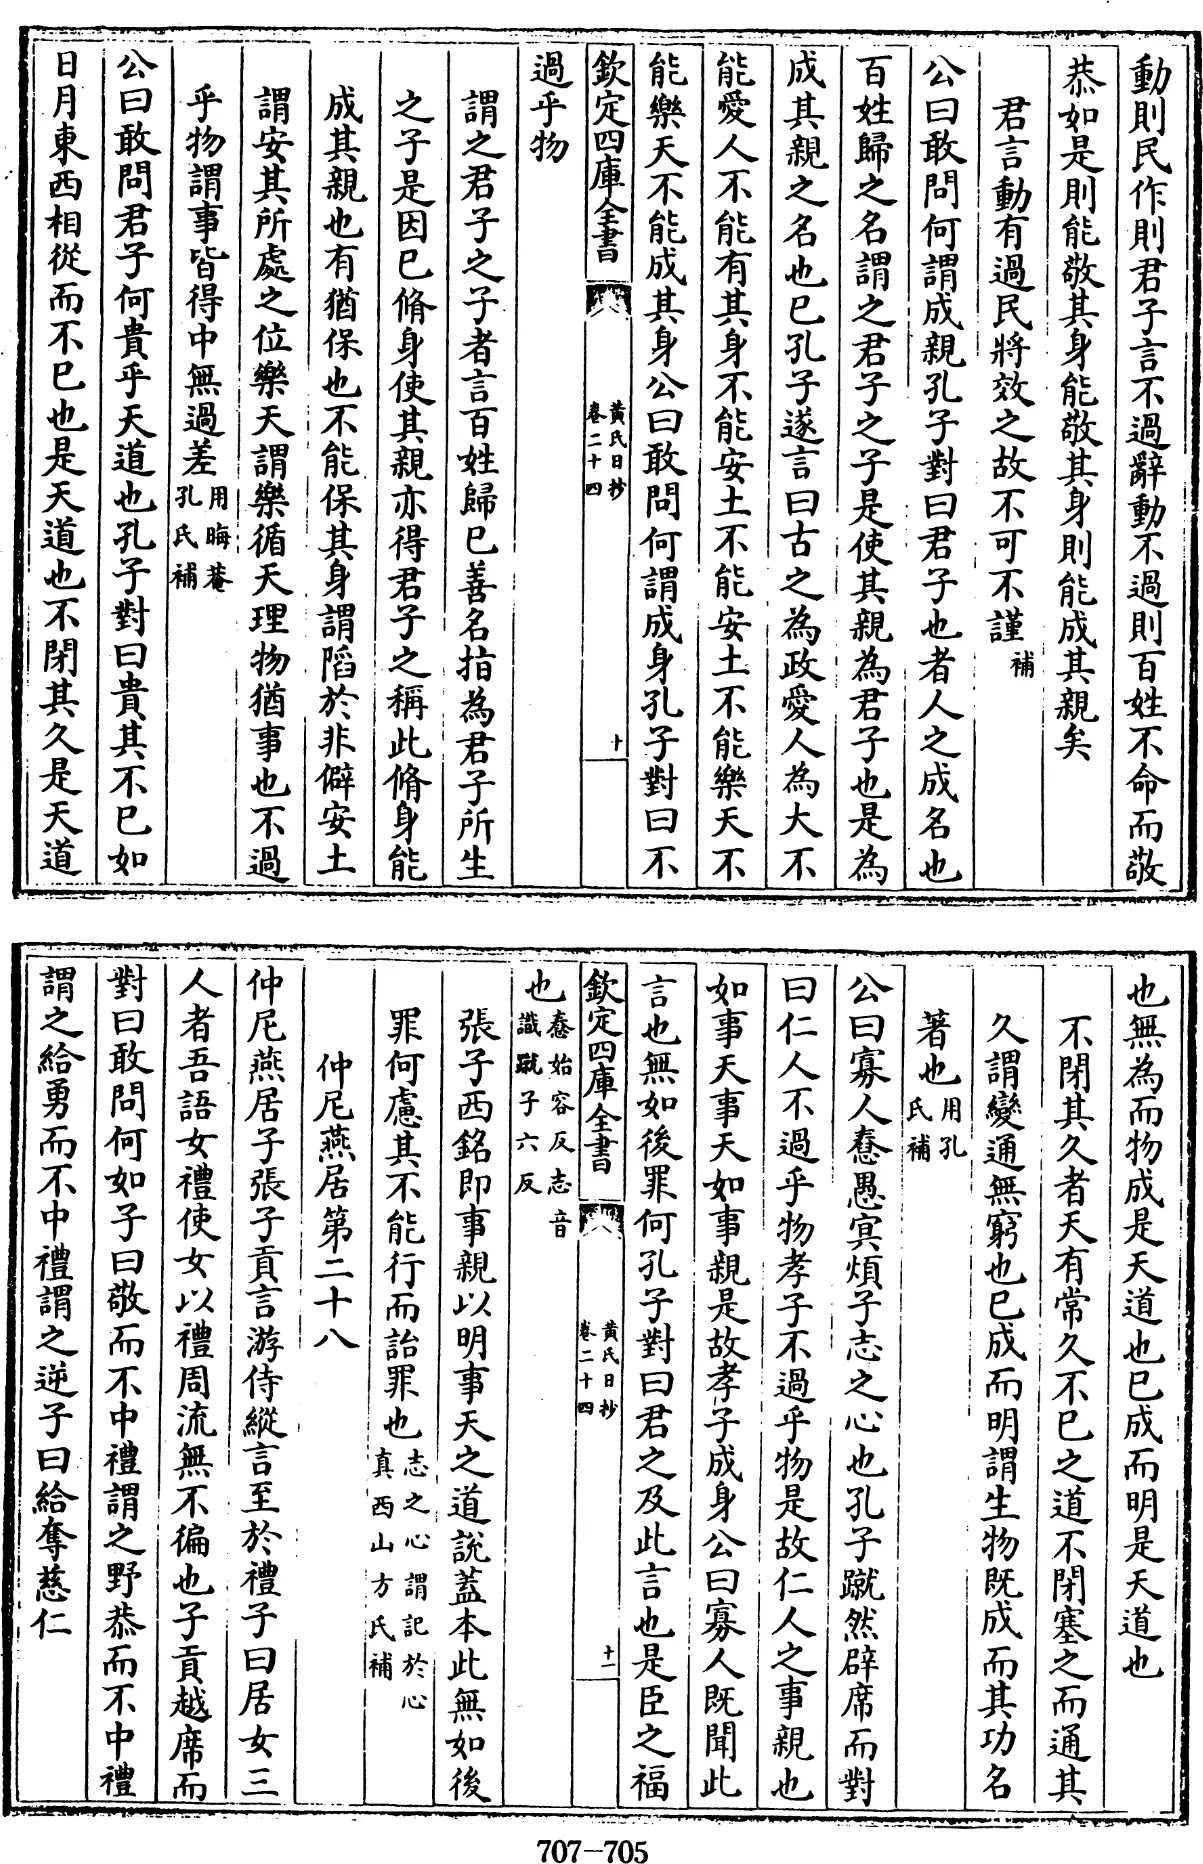 動則民作則君子言不過辭動不過則百姓不命而敬
恭如是則能敬其身能敬其身則能成其親矣
君言動有過民將效之故不可不謹補
公曰敢問何謂成親孔子對曰君子也者人之成名也
百姓歸之名謂之君子之子是使其親為君子也是為
成其親之名也已孔子遂言曰古之為政愛人為大不
能愛人不能有其身不能安土不能安土不能樂天不
能樂天不能成其身公曰敢問何謂成身孔子對曰不
欽定四庫全書
黃氏日抄
卷二十四
十
過乎物
謂之君子之子者言百姓歸已善名指為君子所生
之子是因已脩身使其親亦得君子之稱此脩身能
成其親也有猶保也不能保其身謂陷於非僻安土
謂安其所處之位樂天謂樂循天理物猶事也不過
乎物謂事皆得中無過差用晦菴
孔氏補
公曰敢問君子何貴乎天道也孔子對曰貴其不已如
日月東西相從而不已也是天道也不閉其久是天道
也無為而物成是天道也已成而明是天道也
不閉其久者天有常久不已之道不閉塞之而通其
久謂變通無窮也已成而明謂生物既成而其功名
著也用孔
氏補
公曰寡人憃愚冥煩子志之心也孔子蹴然辟席而對
曰仁人不過乎物孝子不過乎物是故仁人之事親也
如事天事天如事親是故孝子成身公曰寡人既聞此
言也無如後罪何孔子對曰君之及此言也是臣之福
欽定四庫全書
黃氏日抄
卷二十四
十一
也憃始容反志音
識蹴子六反
張子西銘即事親以明事天之道說蓋本此無如後
罪何慮其不能行而詒罪也志之心謂記於心
真西山方氏補
仲尼燕居第二十八
仲尼燕居子張子貢言游侍縱言至於禮子曰居女三
人者吾語女禮使女以禮周流無不徧也子貢越席而
對曰敢問何如子曰敬而不中禮謂之野恭而不中禮
謂之給勇而不中禮謂之逆子曰給奪慈仁
707-705